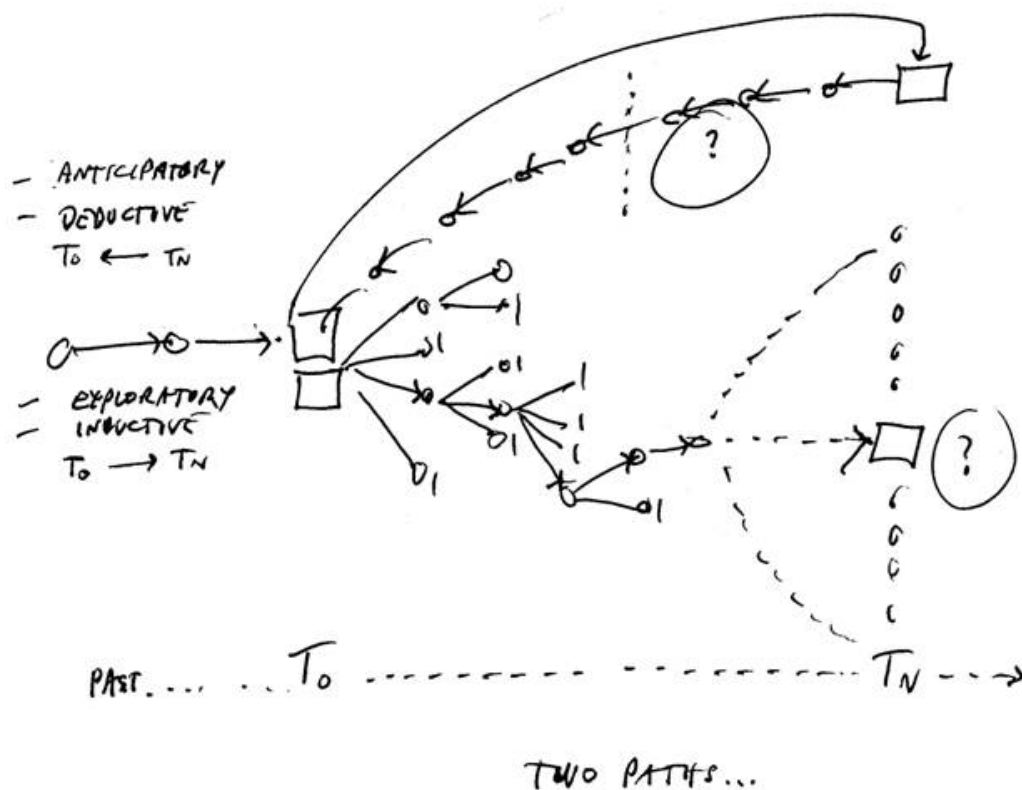 - ANTICIPATORY
- DEDUCTIVE
T0 ← TN
?
- EXPLORATORY
- INDUCTIVE
T0 → TN
1
1
1
1
1
1
1
1
1
?
PAST..... ..... T0 ---------- TN ---->
TWO PATHS...